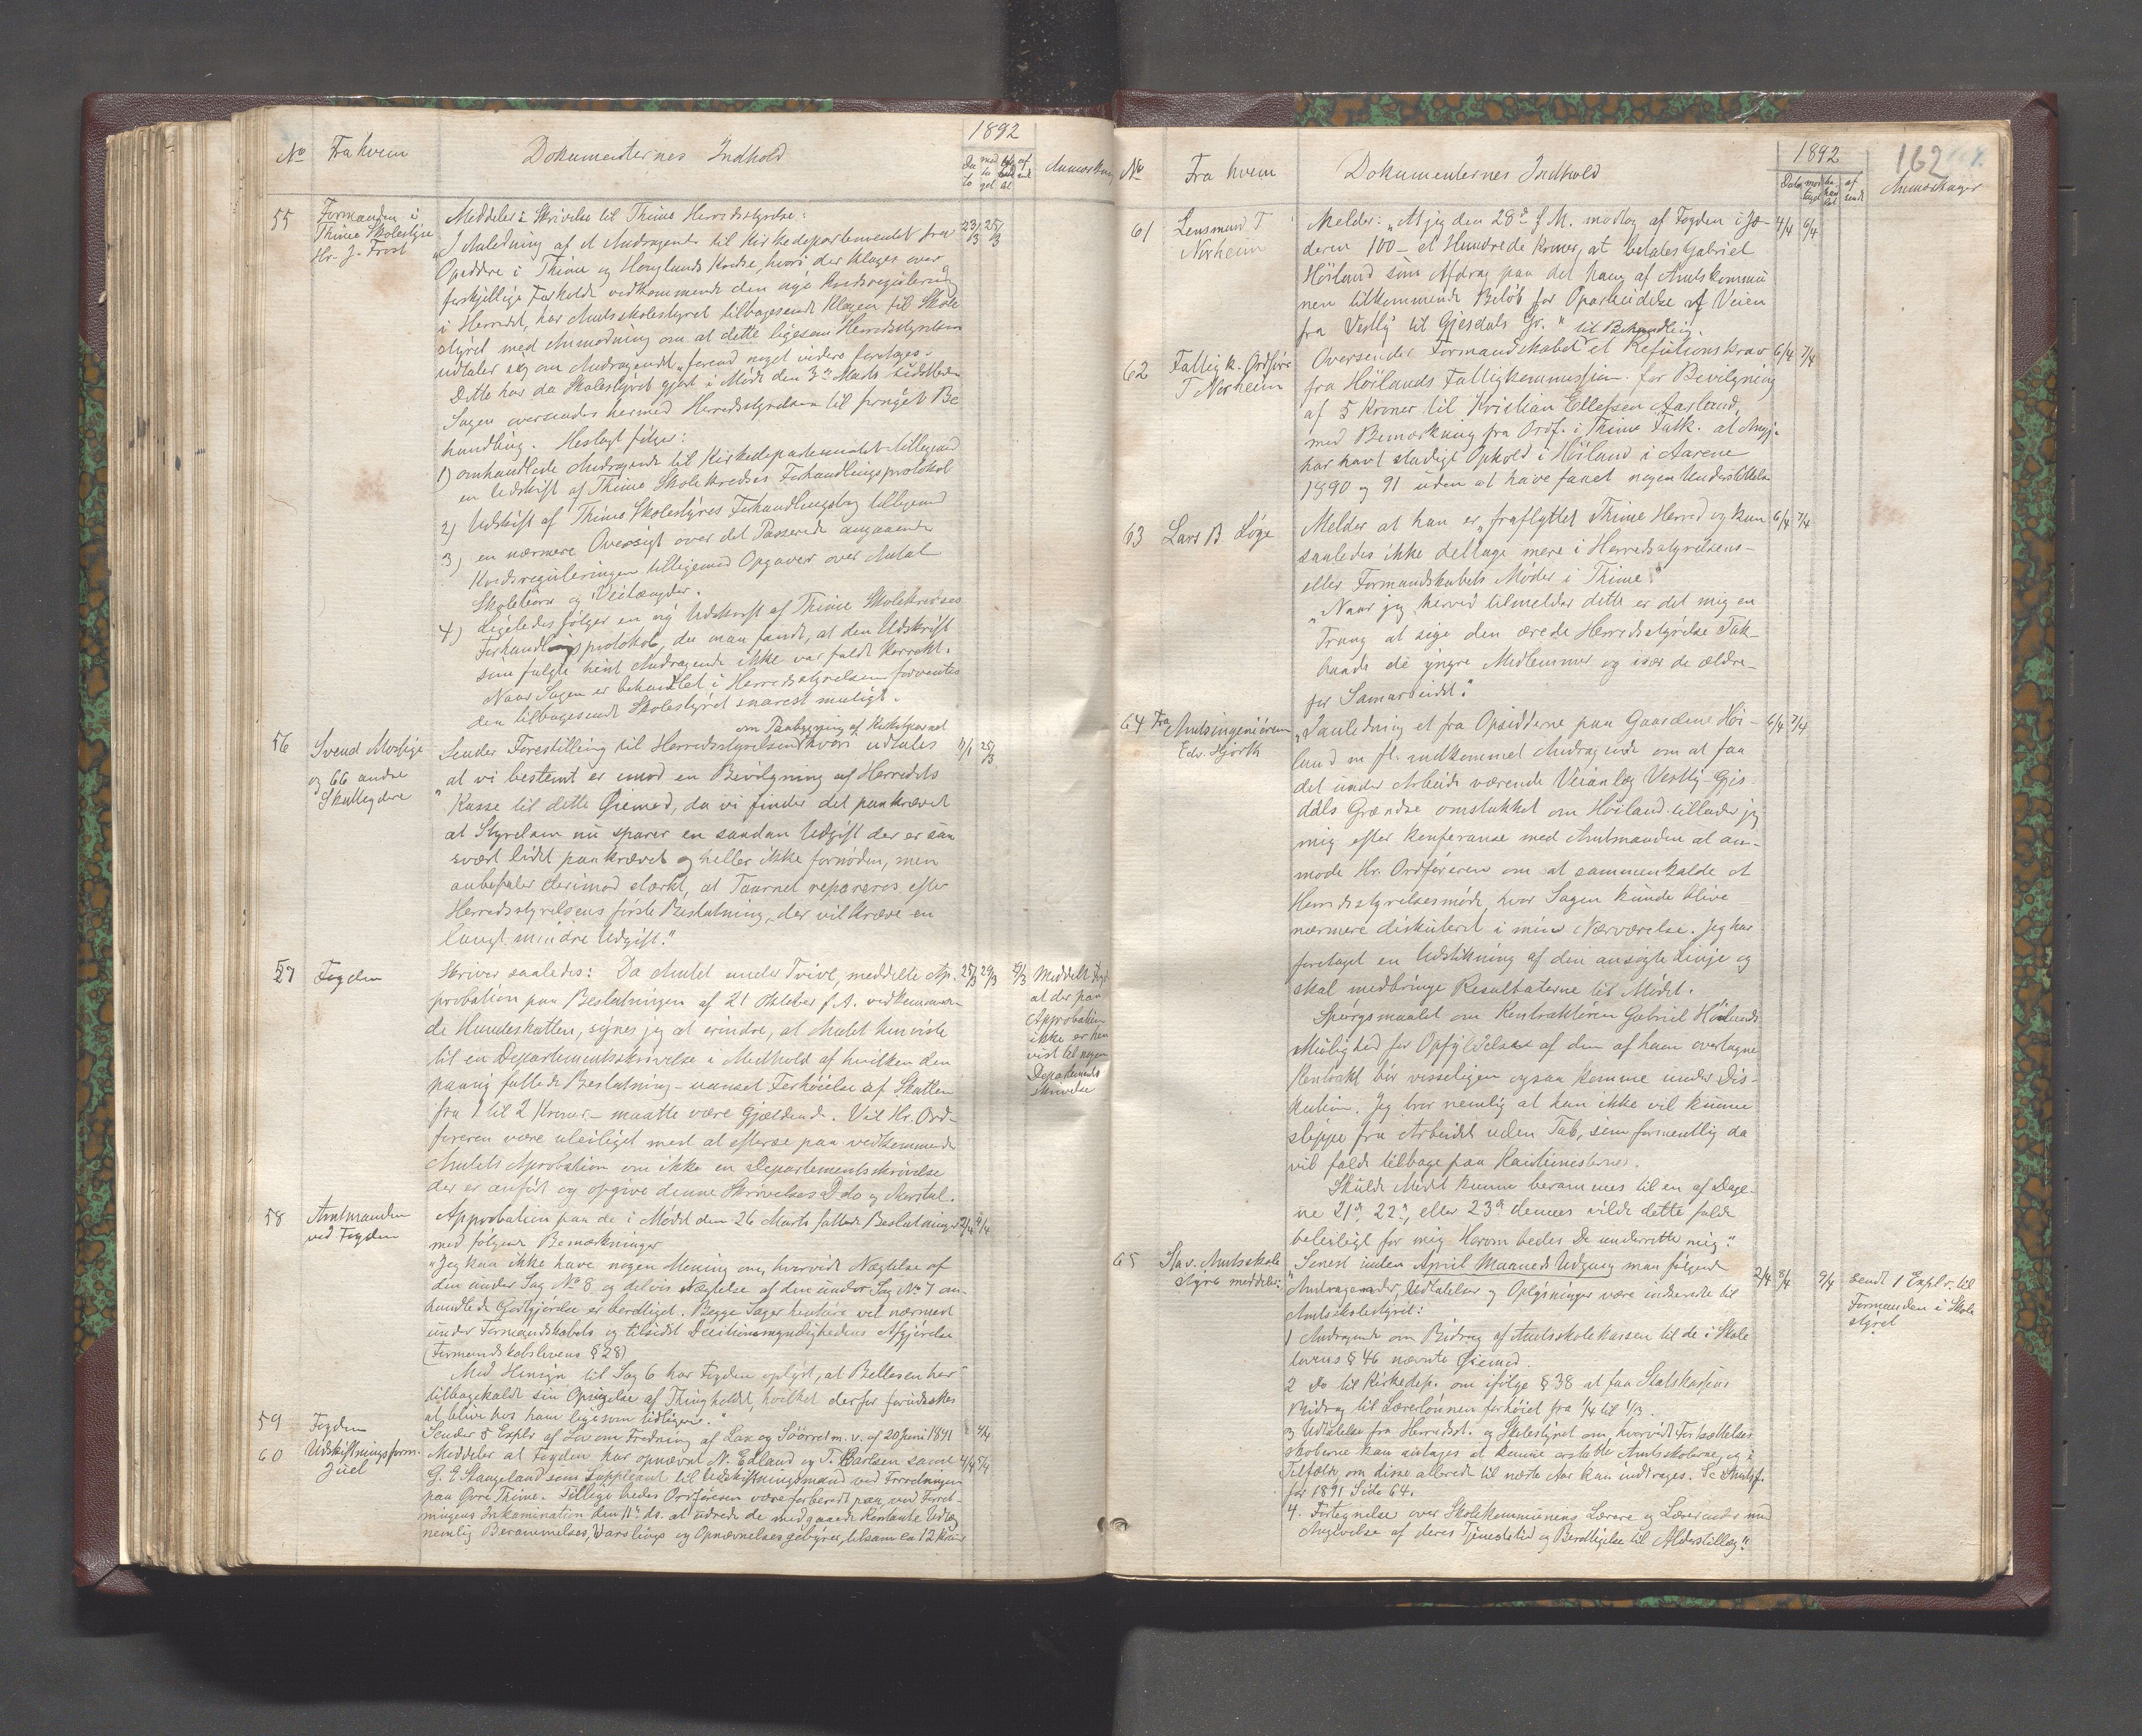 1892
No Fra hvem Dokumenternes Indhold Da to mod get be hand let af sendt Anmærkning
55 Formanden i Thime Skolestyre Hr. J. Frost
Meddeler i Skrivelse til Thime Herredsstyrelse: 23/3 25/3
„I Anledning af et Andragende til Kirkedepartementet fra
Opsiddere i Thime og Hauglands Kredse, hvori der klages over
forskjellige Forholde vedkommende den nye Kredsregulering
i Herredet, har Amtsskolestyret tilbagesendt Klagen til Skole
styret med Anmodning om at dette ligesom Herredsstyrelsen
udtaler sig om Andragendet, forend noget videre foretages.
Dette har da Skolestyret gjort i Møde den 3die Marts sidstleden
Sagen oversendes hermed Herredsstyrelsen til forøget Be
handling. Heslagt følger:
1) omhandlede Andragende til Kirkedepartementet tilligemed
en Udskrift af Thime Skolekredses Forhandlingsprotokol
2) Udskrift af Thime Skolestyres Forhandlingsbog tilligemed
3) en nærmere Oversigt over det Passerede angaaende
Kredsreguleringen tilligemed Opgaver over Antal
Skolebørn og Veilængder.
4) Ligeledes følger en ny Udskrift af Thime Skolekredses
Forhandlingsprotokol, da man fandt, at den Udskrift
som fulgte hint Andragende ikke var fuldt korrekt.
Naar Sagen er behandlet i Herredsstyrelsen forventes
den tilbagesendt Skolestyret snarest muligt.
om Paabygning af Kirketaarnet
56 Svend Mossige og 66 andre Skatteydere
Sender Forestilling til Herredsstyrelsen hvori udtales 11/1 25/3
„at vi bestemt er imod en Bevilgning af Herredets
Kasse til dette Øiemed, da vi finder det paakrævet
at Styrelsen nu sparer en saadan Udgift der er saa
svært lidet paakrævet og heller ikke fornøden, men
anbefaler derimod stærkt, at Taarnet repareres efter
Herredsstyrelsens første Beslutning, der vil kræve en
langt mindre Udgift."
57 Fogden
Skriver saaledes: Da Amtet under Tvivl, meddelte Ap- 25/3 29/3
probation paa Beslutningen af 21 Oktober f. A. vedkommen
de Hundeskatten, synes jeg at erindre, at Amtet henviste
til en Departementsskrivelse i Medhold af hvilken den
paany fattede Beslutning – uanset Forhøielse af Skatten
fra 1 til 2 Kroner – maatte være Gjældende. Vil Hr. Ord-
føreren være uleiliget med at efterse paa vedkommende
Amtets Aprobation om ikke en Departementsskrivelse
der er anført og opgive denne Skrivelses Dato og Aarstal.
Meddelt Fogd at der paa Approbation ikke er hen vist til nogen Departements skrivelse
58 Amtmanden ved Fogden
Approbation paa de i Mødet den 26 Marts fattede Beslutninger 2/4 4/4
med følgende Bemærkninger
„Jeg kan ikke have nogen Mening om, hvorvidt Nægtelse af
den under Sag No 8 og delvis Nægtelse af den under Sag No 7 om-
handlede Godtgjørelse er berettiget. Begge Sager henhøre vel nærmest
under Formandskabets og tilsidst Decisionsmyndighedens Afgjørelse
(Formandskabslovens § 28)
Med Hensyn til Sag 6 har Fogden oplyst, at Bellesen har
tilbagekaldt sin Opsigelse af Thingholdt, hvilket derfor forudsættes
at blive hos ham ligesom tidligere."
59 Fogden
Sender 5 Explr af Lov om Fredning af Lax og Söörret m. v. af 20 Juni 1891 4/4
60 Udskiftningsform. Juel
Meddeler at Fogden har opnævnt N. Edland og T. Bartsen samt 4/4 5/4
G. E. Stangeland som Suppleant til Udskiftningsmænd ved Forretningen
paa Øvre Thime. Tillige bedes Ordføreren være forberedt paa, ved Forret-
ningens Inkamination den 11te ds. at udrede de medgaaede Kontante Udlæg
nemlig Berammelses, Varslings og Opnævnelsesgebyrer, tilsammen ca 12 Kroner
1892 162
No Fra hvem Dokumenternes Indhold Dato mod taget be hand let af sendt Anmærkninger
61 Lensmand T Norheim
Melder: „At jeg den 28de f. M. modtog af Fogden i Jæ- 4/4 6/4
deren 100 – et Hundrede Kroner, at betales Gabriel
Höiland som Afdrag paa det ham af Amtskommu
nen tilkommende Beløb for Oparbeidelse af Veien
fra Vestly til Gjesdals Gr."
til Behandling.
62 Fattigk. Ordfører T Norheim
Oversender Formandskabet et Refusionskrav 6/4 7/4
fra Höilands Fattigkommission for Bevilgning
af 5 Kroner til Kristian Ellefsen Aasland,
med Bemærkning fra Ordf. i Thime Fattk. at Angj.
har havt stadigt Ophold i Höiland i Aarene
1890 og 91 uden at have faaet nogen Understöttelse
63 Lars B. Löge
Melder at han er „fraflyttet Thime Herred og kan 6/4 7/4
saaledes ikke deltage mere i Herredsstyrelsens-
eller Formandskabets Møder i Thime."
„Naar jeg herved tilmelder dette er det mig en
Trang at sige den ærede Herredsstyrelse Tak –
baade de yngre Medlemmer og især de ældre –
for Samarbeidet."
64 Fra Amtsingeniøren Edv. Hjorth
„I Anledning et fra Opsidderne paa Gaardene Höi- 6/4 7/4
land m fl. indkommet Andragende om at faa
det under Arbeide værende Veianlæg Vestly-Gjes-
dals Grændse omstukket om Höiland tillader jeg
mig efter Konferanse med Amtmanden at an-
mode Hr. Ordføreren om at sammenkalde et
Herredsstyrelsesmøde, hvor Sagen kunde blive
nærmere diskuteret i min Nærværelse. Jeg har
foretaget en Udstikning af den ansøgte Linje og
skal medbringe Resultaterne til Mødet.
Spørgsmaalet om Kontraktören Gabriel Hölands
Mulighed for Opfyldelse af den af ham overtagne
Kontrakt bör visseligen ogsaa komme under Dis-
kution. Jeg tror nemlig at han ikke vil kunne
slippe fra Arbeidet uden Tab, som formentlig da
vil falde tilbage paa Kautionisterne.
Skulde Mødet kunne berammes til en af Dage-
ne 21de, 22de, eller 23de dennes vilde dette falde
beleiligt for mig Herom bedes De underrette mig."
65 Stav. Amtsskole styre meddeler:
„Senest inden April Maaneds Udgang maa følgende 2/4 8/4 9/4
Andragender, Udtalelser og Oplysninger være indsendte til
Amtsskolestyret:
1 Andragende om Bidrag af Amtsskolekassen til de i Skole
lovens § 46 nævnte Øiemed.
2 Do til Kirkedep. om ifölge § 38 at faa Statskassens
Bidrag til Lærerlønnen forhøiet fra 1/4 til 1/3.
3 Udtalelse fra Herredsst. og Skolestyret om, hvorvidt Fortsættelses
skolerne kan antages at kunne erstatte Amtsskolerne, og i
Tilfælde, om disse allerede til næste Aar kan inddrages.
for 1891 Side 64.
4. Fortegnelse over Skolekommunens Lærere og Lærerinder med
Angivelse af deres Tjenestetid og Berettigelse til Alderstillæg".
sendt 1 Expl. til Formanden i Skole styret